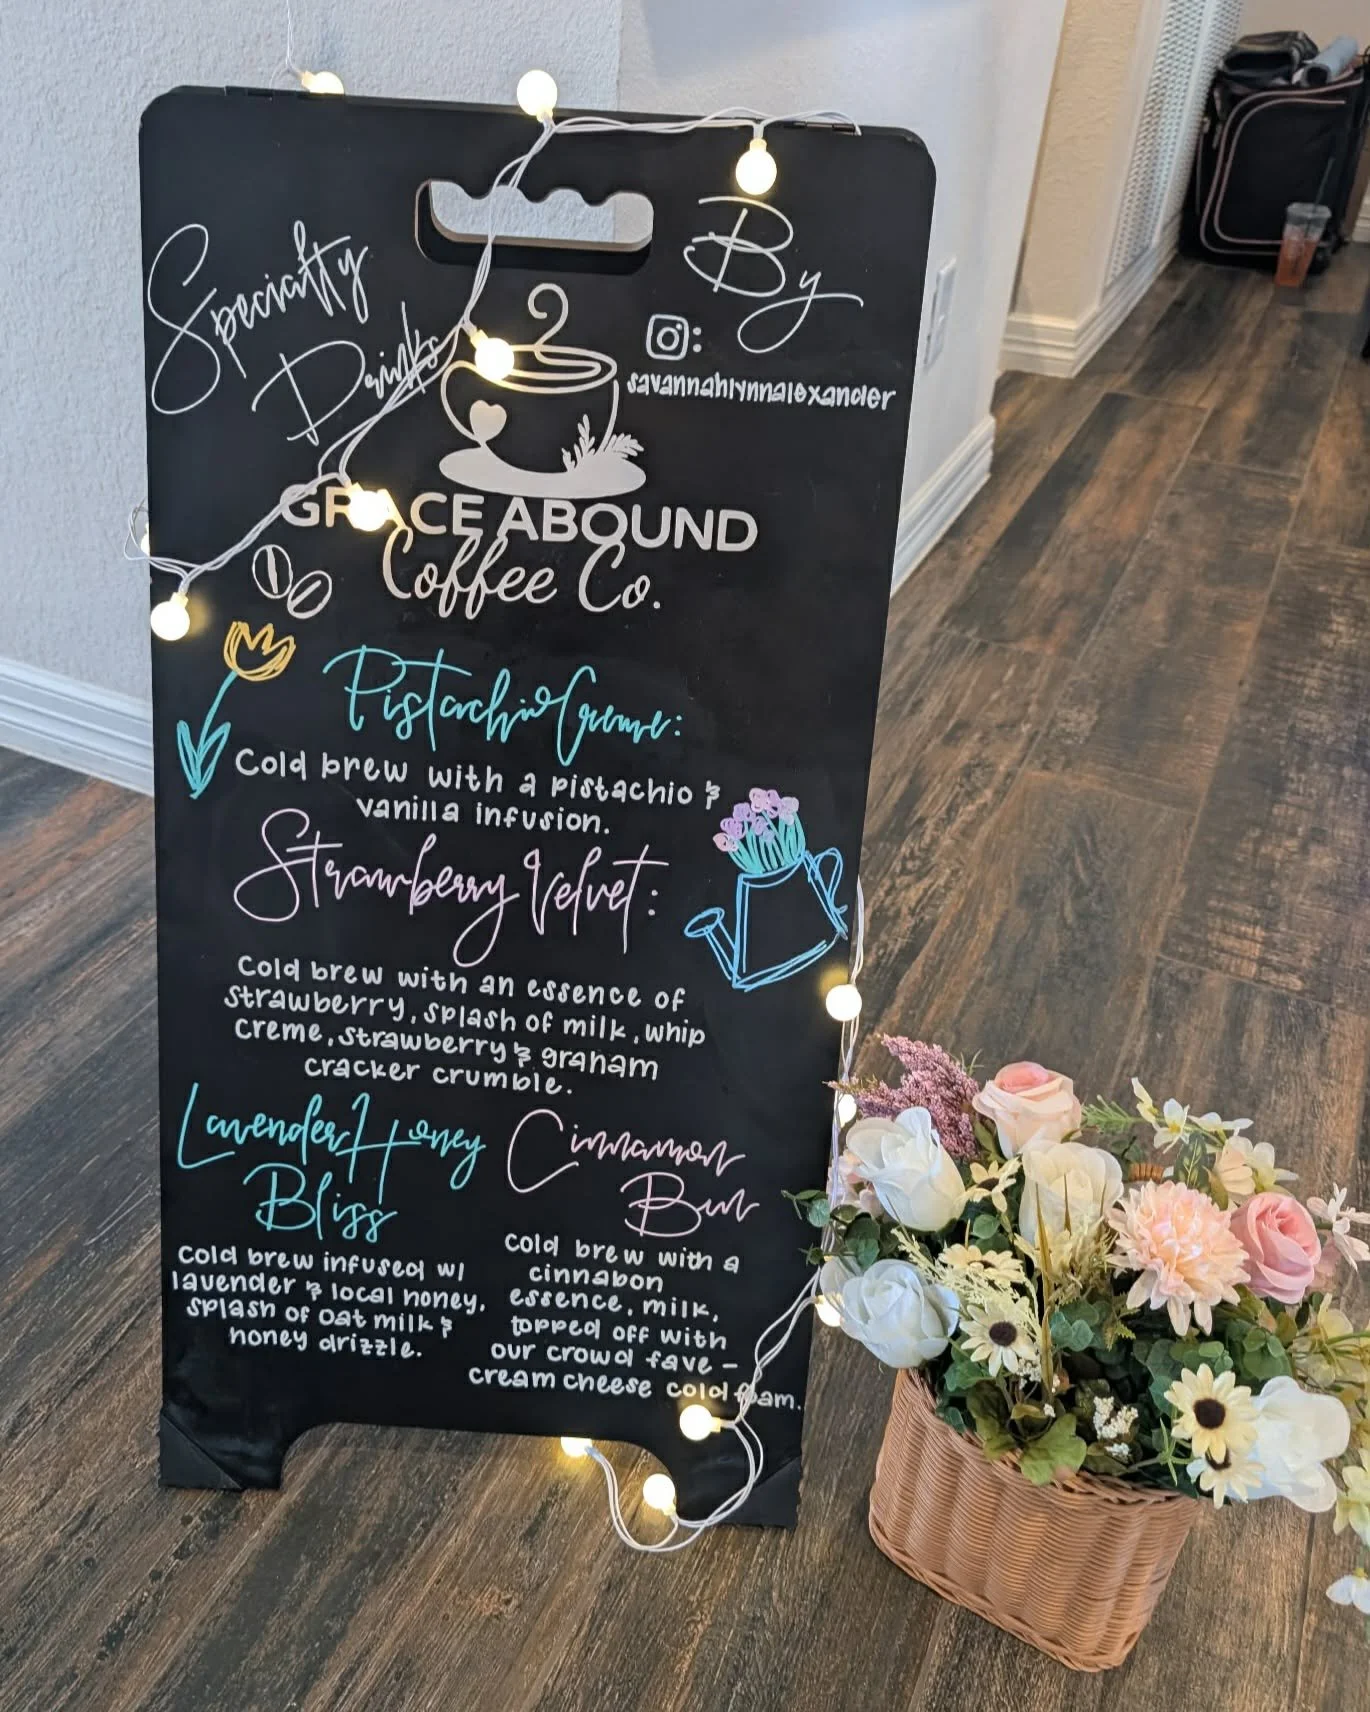 Specialty
Drinks
By
:
savannahlynnalexander
GRACE ABOUND
Coffee Co.
Pistachio Creme:
Cold brew with a pistachio &
vanilla infusion.
Strawberry Velvet:
Cold brew with an essence of
strawberry, splash of milk, whip
creme, strawberry & graham
cracker crumble.
Lavender Honey
Bliss
Cold brew infused w/
lavender & local honey,
splash of oat milk &
honey drizzle.
Cinnamon
Bun
Cold brew with a
cinnabon
essence, milk,
topped off with
our crowd fave -
cream cheese cold foam.